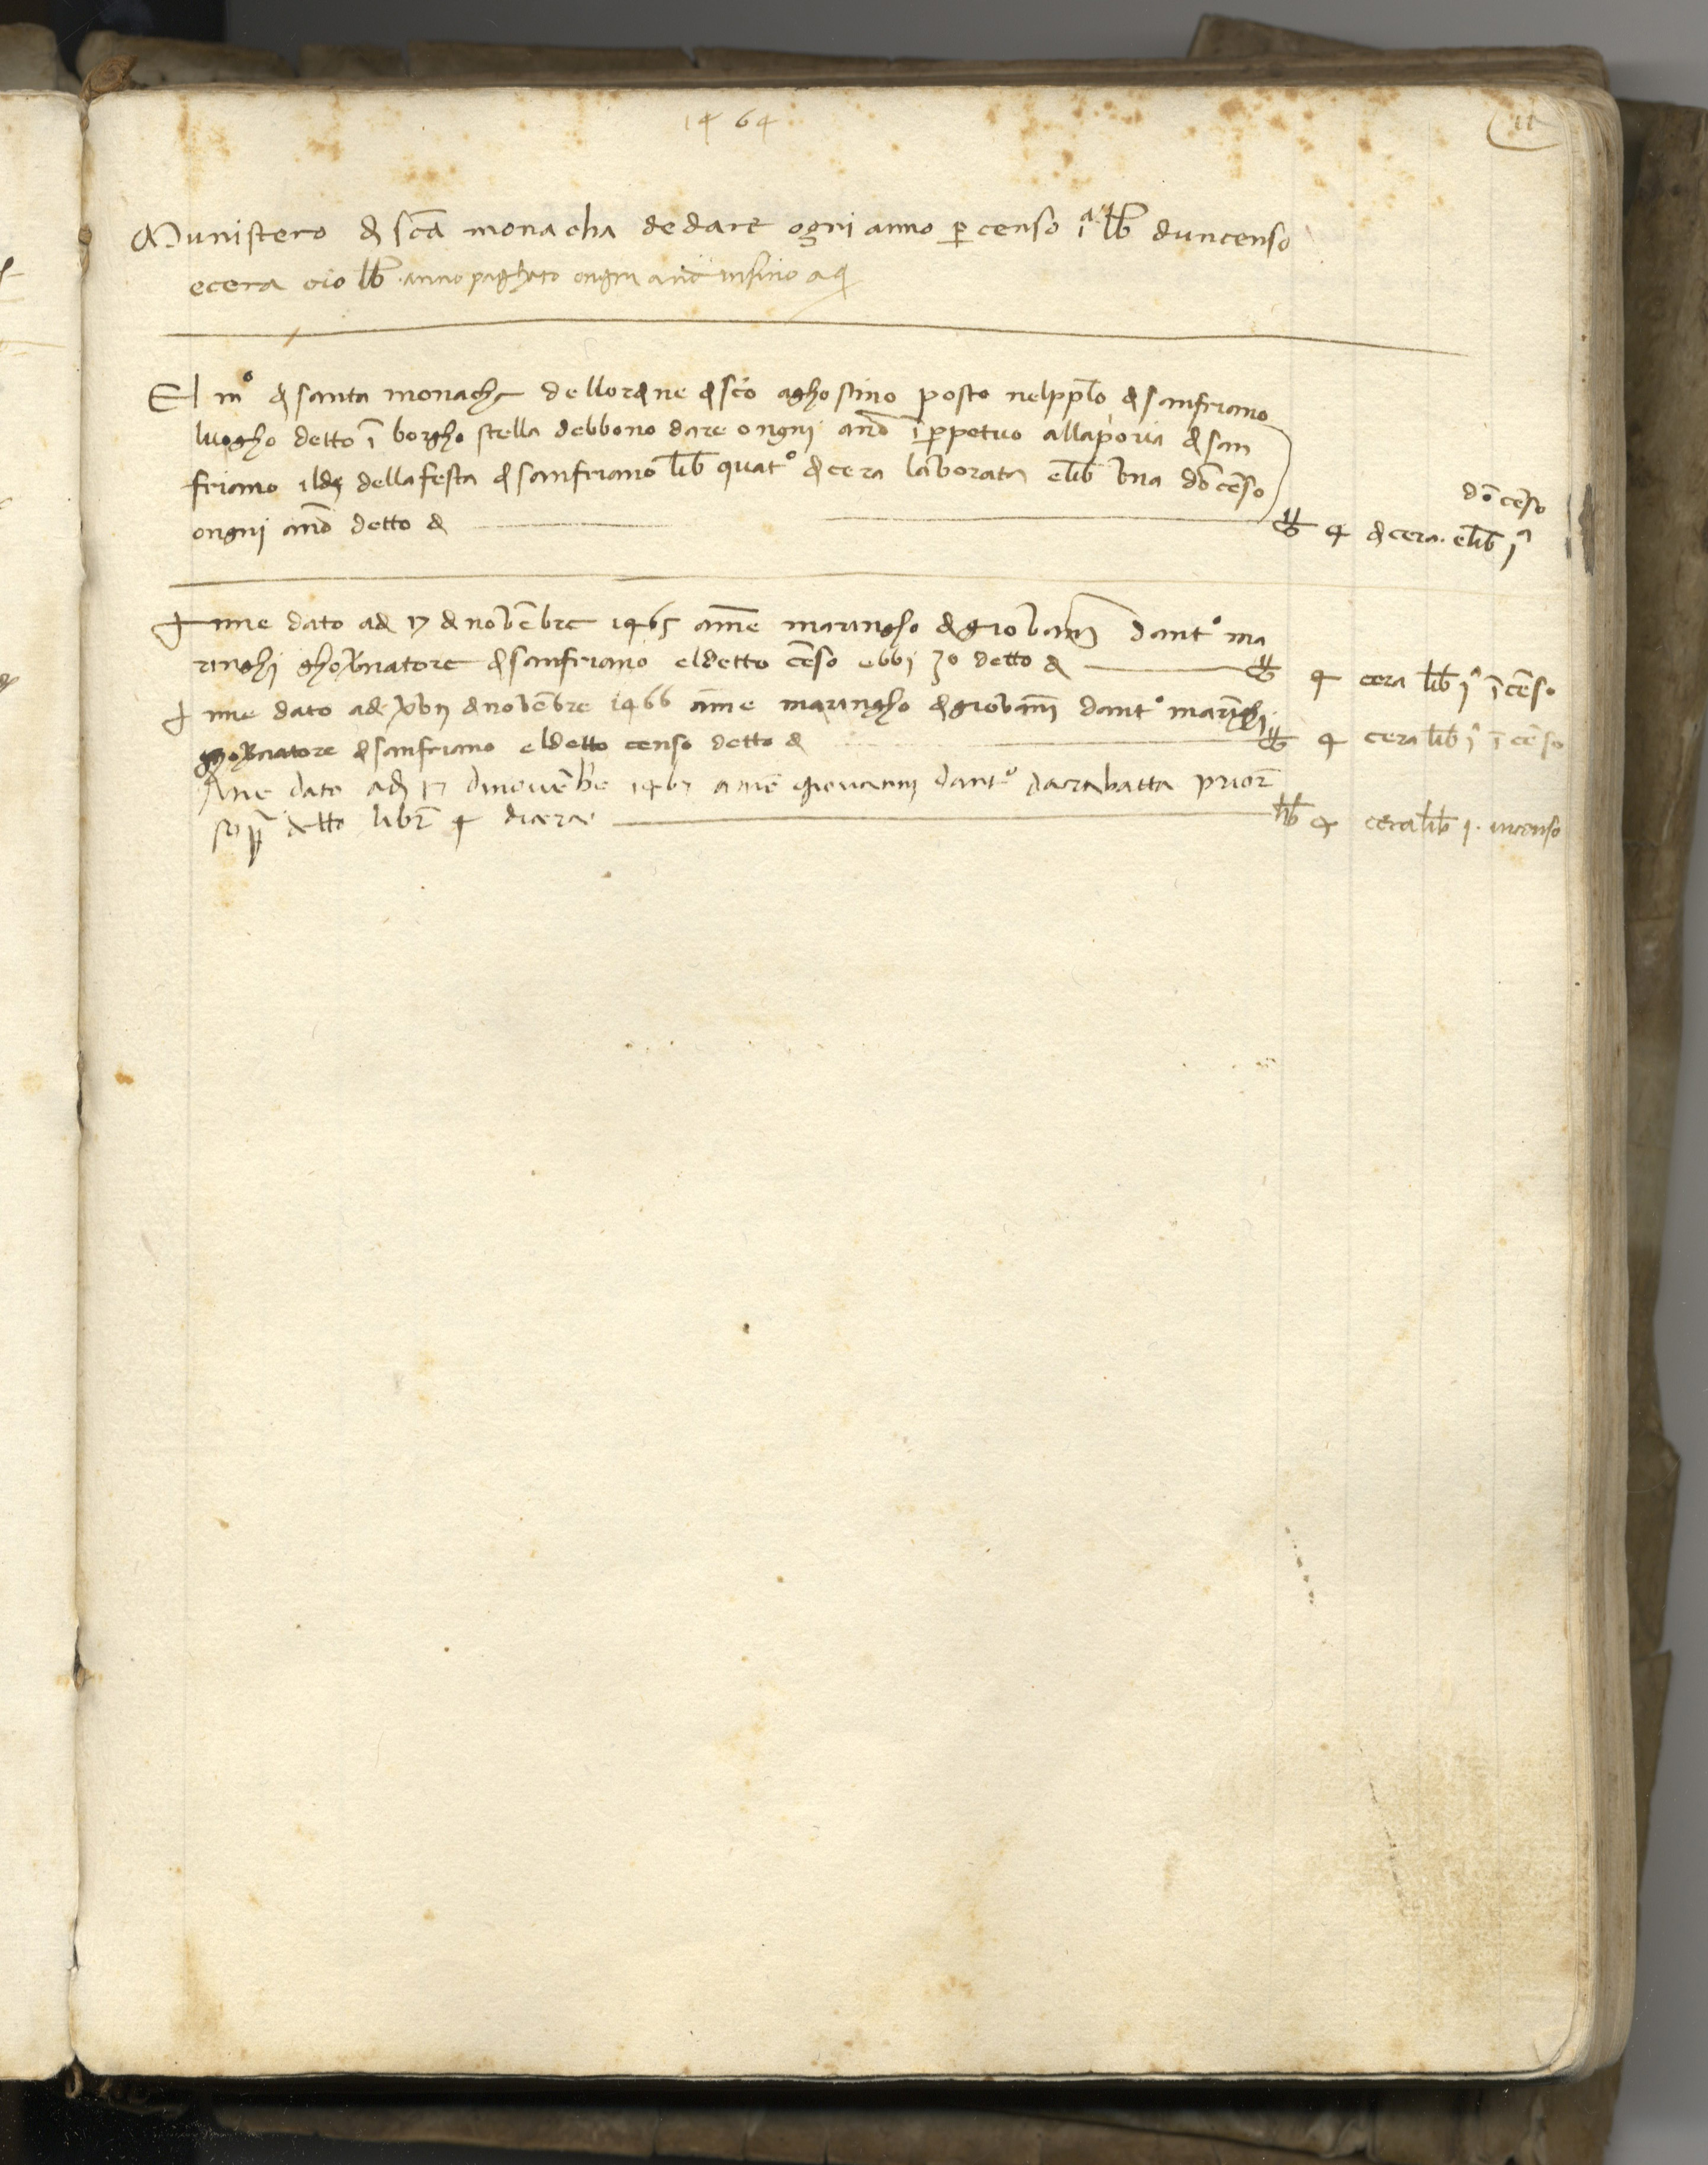 1464
11
Munistero di sc̄a monacha de dare ogni anno p̱ censo iᵃ lb̄ duncenso
ecera cio lb̄ anno paghato ongni an̄o insino a q
El mº di santa monacha dellordine di sc̄o aghostino posto nel pp̄lo di sanfriano
luogho detto ī borgho stella debbono dare ongni an̄o ī p̱petuo alla di san
friano il dj della festa di sanfriano lib̄ quatº di cera laborata e lib̄ una dōcēso
dōcēso
ongni an̄o detto di lb̄ 4 di cera e lib̄ jᵃ
Anne dato adi 17 di nobēbre 1465 am̄e maringho di giobanj̄ dantº ma
ringhi ghobernatore di sanfriano el detto cēso ebbi jo detto di lb̄ 4 cera lib̄ jᵃ īcēso
Anne dato adi xbij di nobēbre 1466 ām̄e maringho di giobanj̄ dantº marīghj
ghobernatore di sanfriano el detto censo detto di lb̄ 4 cera lib̄ jᵃ īcēso
Ane dato adj 17 dinovēbre 1467 a mē giovannj dantº da rabatta prior̄
sop̱ detto libr̄ 4 dicera lb̄ 4 cera lib̄ 1. incenso